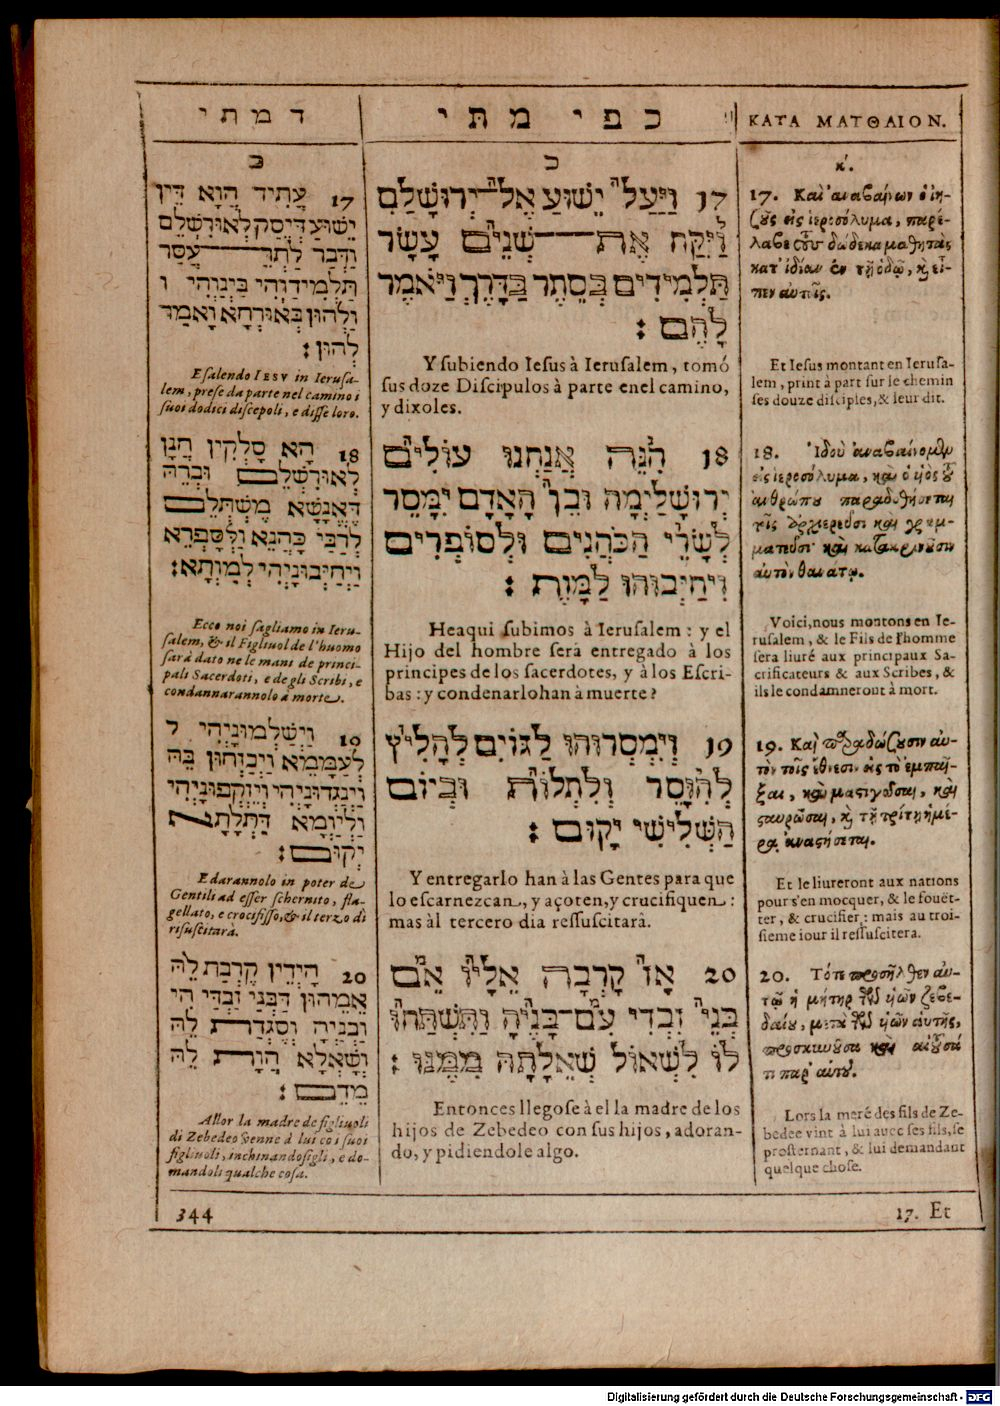 דמתי
ב
17 עֲתִיד הֲוָא דֵּין
יֵשׁוּעַ דְּיִסַק לְאוּרִשְׁלֵם
וְדַבַּר לְתְרֵ עְסַר
תַּלְמִידַוְהִי בַּינַוְהִי ו
וַלְהוּן בְּאוּרְחָא וֶאֲמַר
לְהוּן:
E salendo IESV in Ierusa-
lem, prese da parte nel camino i
suoi dodici discepoli, e disse loro.
18 הָא סָלְקִין חֲנַן
לְאוּרִשְׁלֵם וּבְרֵהּ
דֶּאֱנָשָׁא מֶשְׁתְּלֵם
לְרַבַּי כָּהֲנֵא וַלְסָפְרֵא
וַיחַיְּבוּנָיְהִי לְמַוְתָּא:
Ecco noi sagliamo in Ieru-
salem, & il Figliuol de l'huomo
sara dato ne le mani de princi-
pali Sacerdoti, e de gli Scribi, e
condannarannolo à morte.
19 וְיַשְׁלְמוּנָיְהִי ל
לְעַמְמֵא וַיבַזְּחוּן בֵּהּ
וַינַגְּדוּנָיְהִי וְיִזְקְפוּנָיְהִי
וַלְיַוְמָא דַּתְלָתָא
יְקוּם:
E darannolo in poter de
Gentili ad esser schernito, fla-
gellato, e crocifisso, & il terzo di
risuscitarà.
20 הָידֵין קֶרְבַת לֵהּ
אֶמְּהוּן דַּבְנַי זַבְדַּי הִי
וַבְנֵיהּ וְסֶגְדַת לֵהּ
וְשָׁאֲלָא הֲוָת לֵהּ
מֶדֶּם:
Allor la madre de figliuoli
di Zebedeo venne à lui co i suoi
figliuoli, inchinandosigli, e do-
mandoli qualche cosa.
344
כפי מתי
כ
17 וַיַּעַל יֵשׁוּעַ אֶל־יְרוּשָׁלַםִ
וַיִּקַּח אֶת־שְׁנֵים עָשָׂר
תַּלְמִידִים בְּסֵתֶר בַּדֶּרֶךְ וַיֹּאמֶר
לָהֶם:
Y subiendo Iesus à Ierusalem, tomó
sus doze Discipulos à parte enel camino,
y dixoles.
18 הִנֵּה אֲנַחְנוּ עוֹלִים
יְרוּשָׁלַיְמָה וּבֶן הָאָדָם יִמָּסֵר
לְשָׂרֵי הַכֹּהֲנִים וּלְסוֹפְרִים
וִיחַיְּבוּהוּ לַמָּוֶת:
Heaqui subimos à Ierusalem: y el
Hijo del hombre serà entregado à los
principes de los sacerdotes, y à los Escri-
bas: y condenarlohan à muerte?
19 וְיִמְסְרוּהוּ לַגּוֹיִם לְהָלִיץ
לְהִוָּסֵר וְלִתְלוֹת וּבְיוֹם
הַשְּׁלִישִׁי יָקוּם:
Y entregarlo han à las Gentes para que
lo escarnezcan, y açoten, y crucifiquen:
mas àl tercero dia ressuscitarà.
20 אָז קָרְבָה אֵלָיו אֵם
בְּנֵי זַבְדִי עִם־בָּנֶיהָ וַתִּשְׁתַּחוּ
לוֹ לִשְׁאוֹל שְׁאֵלָתָהּ מִמֶּנּוּ:
Entonces llegose à el la madre de los
hijos de Zebedeo con sus hijos, adoran-
do, y pidiendole algo.
ΚΑΤΑ ΜΑΤΘΑΙΟΝ.
κ'.
17. Καὶ ἀναβαίνων ὁ ἰη-
ζοῦς εἰς ἱεροσόλυμα, παρέ-
λαβε τοὺς δώδεκα μαθητὰς
κατ' ἰδίαν ἐν τῇ ὁδῷ, καὶ εἶ-
πεν αὐτοῖς.
Et Iesus montant en Ierusa-
lem, print à part sur le chemin
ses douze disciples, & leur dit.
18. Ἰδοὺ ἀναβαίνομεν
εἰς ἱεροσόλυμα, καὶ ὁ ὑιὸς τοῦ
ἀνθρώπου παραδοθήσεται
τοῖς ἀρχιερεῦσι καὶ γραμ-
ματεῦσι καὶ κατακρινοῦσιν
αὐτὸν θανάτῳ.
Voici, nous montons en Ie-
rusalem, & le Fils de l'homme
sera liuré aux principaux Sa-
crificateurs & aux Scribes, &
ils le condamneront à mort.
19. Καὶ παραδώζουσιν αὐ-
τὸν τοῖς ἔθνεσιν εἰς τὸ ἐμπαῖ-
ξαι, καὶ μαστιγῶσαι, καὶ
σταυρῶσαι, καὶ τῇ τρίτῃ ἡμέ-
ρᾳ ἀναστήσεται.
Et le liureront aux nations
pour s'en mocquer, & le fouët-
ter, & crucifier: mais au troi-
sieme iour il ressuscitera.
20. Τότε προσῆλθεν αὐ-
τῷ ἡ μήτηρ τῶν ὑιῶν ζεβε-
δαίου, μετὰ τῶν ὑιῶν αὑτῆς,
προσκυνοῦσα καὶ αἰτοῦσά
τι παρ' αὐτοῦ.
Lors la meré des fils de Ze-
bedee vint à lui auec ses fils, se
prosternant, & lui demandant
quelque chose.
17. Et
Digitalisierung gefördert durch die Deutsche Forschungsgemeinschaft - DFG